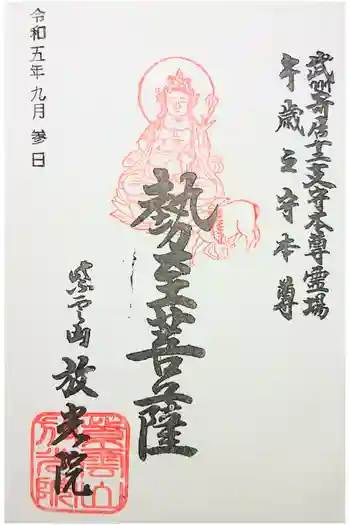 武州寄居十二支守本尊霊場
午歳之守本尊
勢至菩薩
紫雲山 放光院
紫雲山
放光院
令和五年九月参日